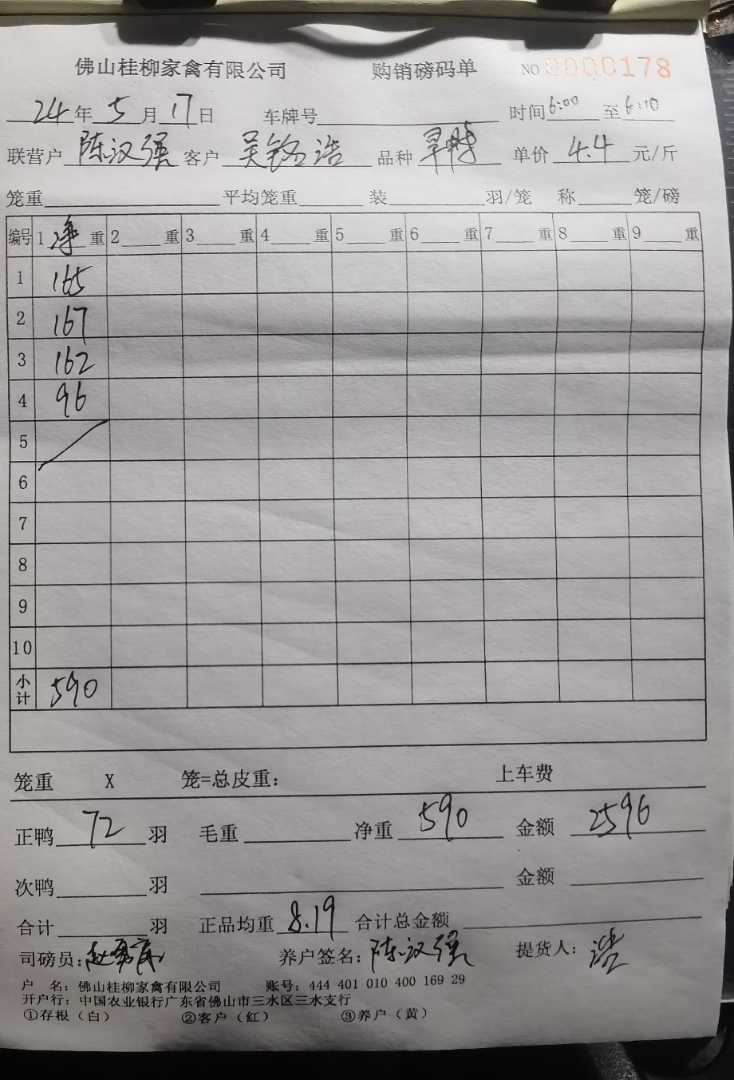 佛山桂柳家禽有限公司 购销磅码单 NO 0000178
24年5月17日 车牌号 时间6:00至6:10
联营户 陈汉强 客户 吴铭浩 品种 单价 4.4 元/斤
笼重 平均笼重 装 羽/笼 称 笼/磅
编号 1 净 重 2 重 3 重 4 重 5 重 6 重 7 重 8 重 9 重
1 165
2 167
3 162
4 96
5
6
7
8
9
10
小计 590
笼重 X 笼=总皮重: 上车费
正鸭 72 羽 毛重 净重 590 金额 2596
次鸭 羽 金额
合计 羽 正品均重 8.19 合计总金额
司磅员: 养户签名: 陈汉强 提货人: 浩
户 名: 佛山桂柳家禽有限公司 账号: 444 401 010 400 169 29
开户行: 中国农业银行广东省佛山市三水区三水支行
①存根(白) ②客户(红) ③养户(黄)